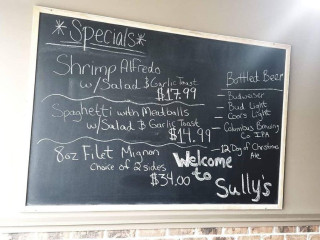 *Specials*
Shrimp Alfredo
w/Salad & Garlic Toast
$17.99
Spaghetti with Meatballs
w/Salad & Garlic Toast
$14.99
8oz Filet Mignon
Choice of 2 sides
$34.00
Bottled Beer
- Budweiser
- Bud Light
- Coors Light
- Columbus Brewing
Co IPA
- 12 Day of Christmas
Ale
Welcome
to
Sully's